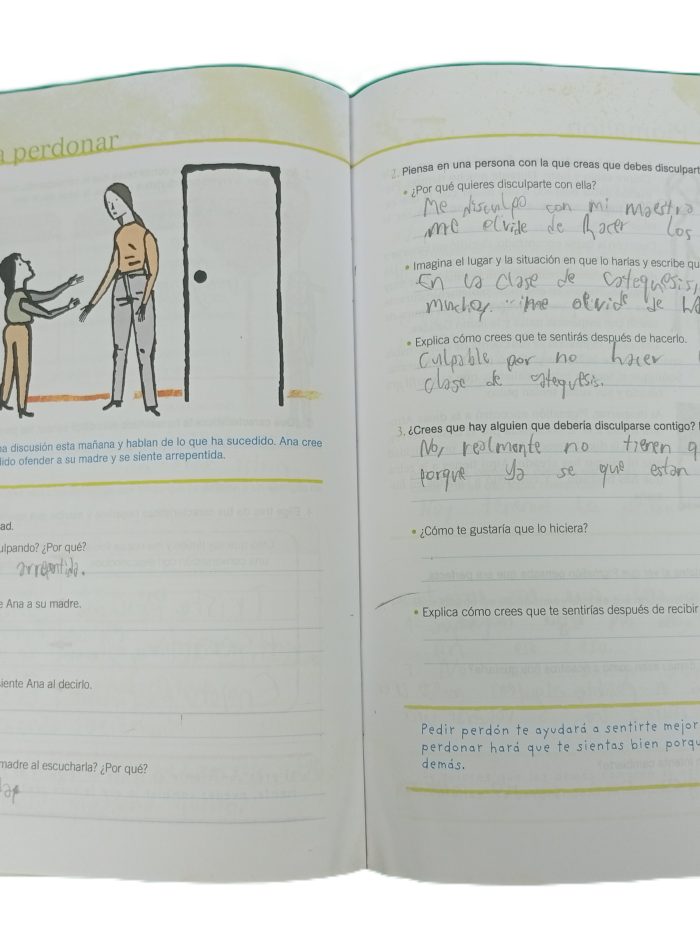 a perdonar
na discusión esta mañana y hablan de lo que ha sucedido. Ana cree
dido ofender a su madre y se siente arrepentida.
ad.
ulpando? ¿Por qué?
arrepentida.
e Ana a su madre.
siente Ana al decirlo.
madre al escucharla? ¿Por qué?
2. Piensa en una persona con la que creas que debes disculpart
• ¿Por qué quieres disculparte con ella?
Me disculpo con mi maestra
me olvide de hacer los
• Imagina el lugar y la situación en que lo harías y escribe qu
En la clase de catequesis,
me olvide de
• Explica cómo crees que te sentirás después de hacerlo.
Culpable por no hacer
clase de catequesis.
3. ¿Crees que hay alguien que debería disculparse contigo?
No, realmente no tienen q
porque ya se que estan
• ¿Cómo te gustaría que lo hiciera?
• Explica cómo crees que te sentirías después de recibir
Pedir perdón te ayudará a sentirte mejor
perdonar hará que te sientas bien porqu
demás.